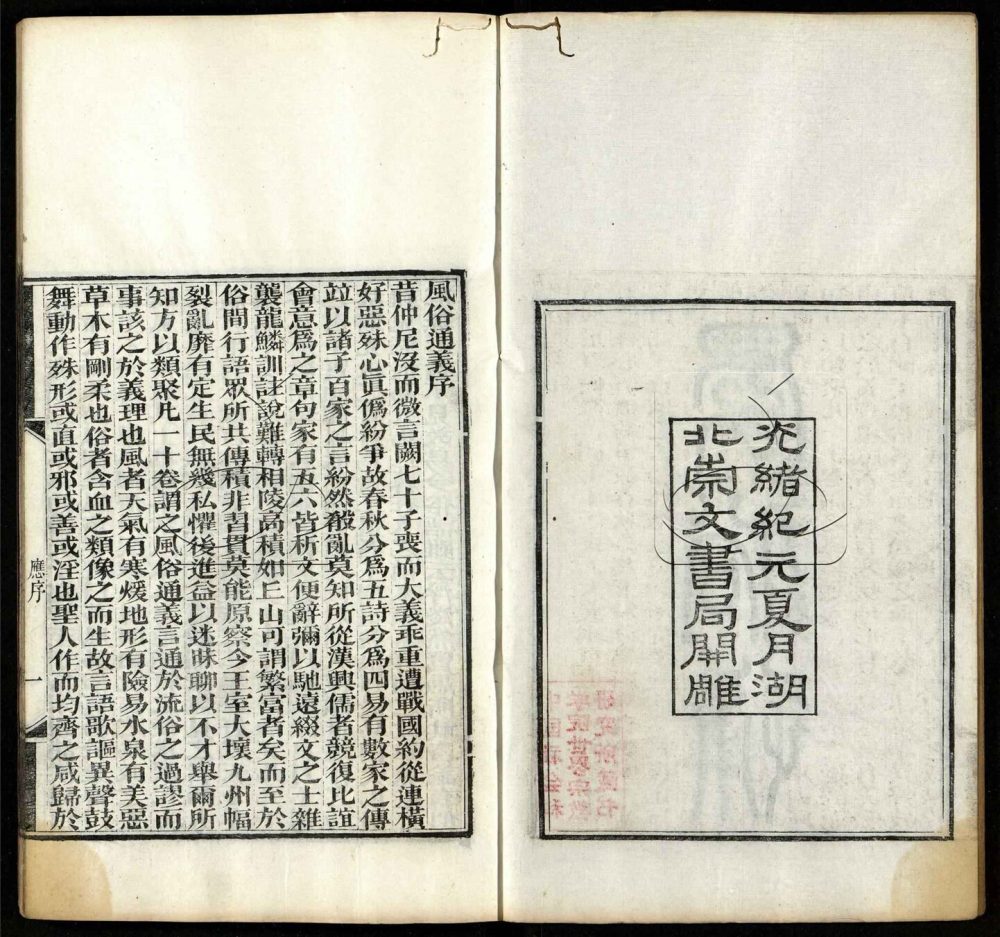 光緒紀元夏月湖
北崇文書局開雕
風俗通義序
昔仲尼沒而微言闕七十子喪而大義乖重遭戰國約從連橫
好惡殊心眞僞紛爭故春秋分爲五詩分爲四易有數家之傳
竝以諸子百家之言紛然殽亂莫知所從漢興儒者競復比誼
會意爲之章句家有五六皆析文便辭彌以馳遠綴文之士雜
襲龍鱗訓註說難轉相陵高積如丘山可謂繁富者矣而至於
俗間行語眾所共傳積非習貫莫能原察今王室大壞九州幅
裂亂靡有定生民無幾私懼後進益以迷昧聊以不才舉爾所
知方以類聚凡一十卷謂之風俗通義言通於流俗之過謬而
事該之於義理也風者天氣有寒煖地形有險易水泉有美惡
草木有剛柔也俗者含血之類像之而生故言語歌謳異聲鼓
舞動作殊形或直或邪或善或淫也聖人作而均齊之咸歸於
應序
一